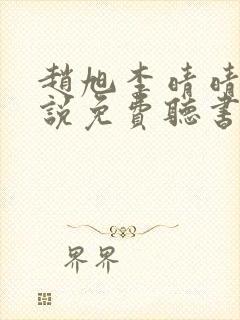 趙旭李晴晴
說免費聽書
界界